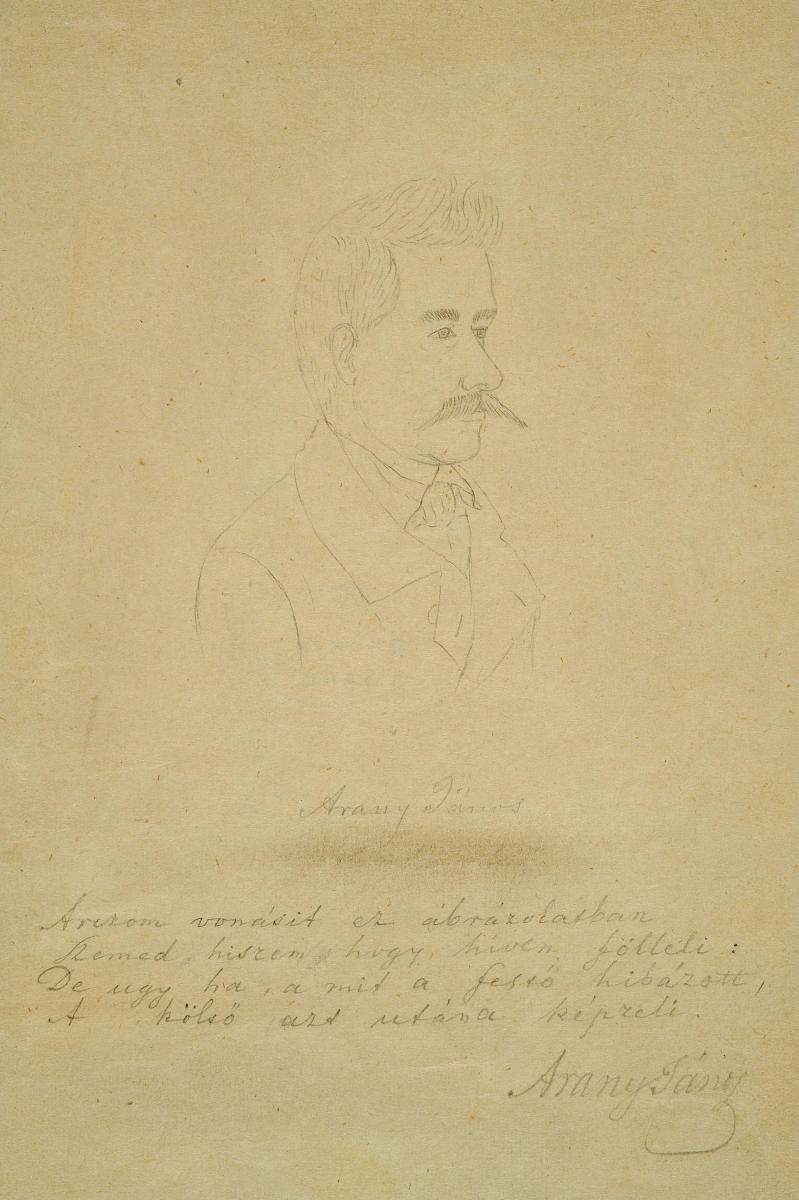 Arany János
Arczom vonásit ez ábrázolatban
Szemed, hiszem hogy, hiven fölleli:
De ugy ha, a mit a festő hibázott,
A költő azt utána képzeli.
Arany János